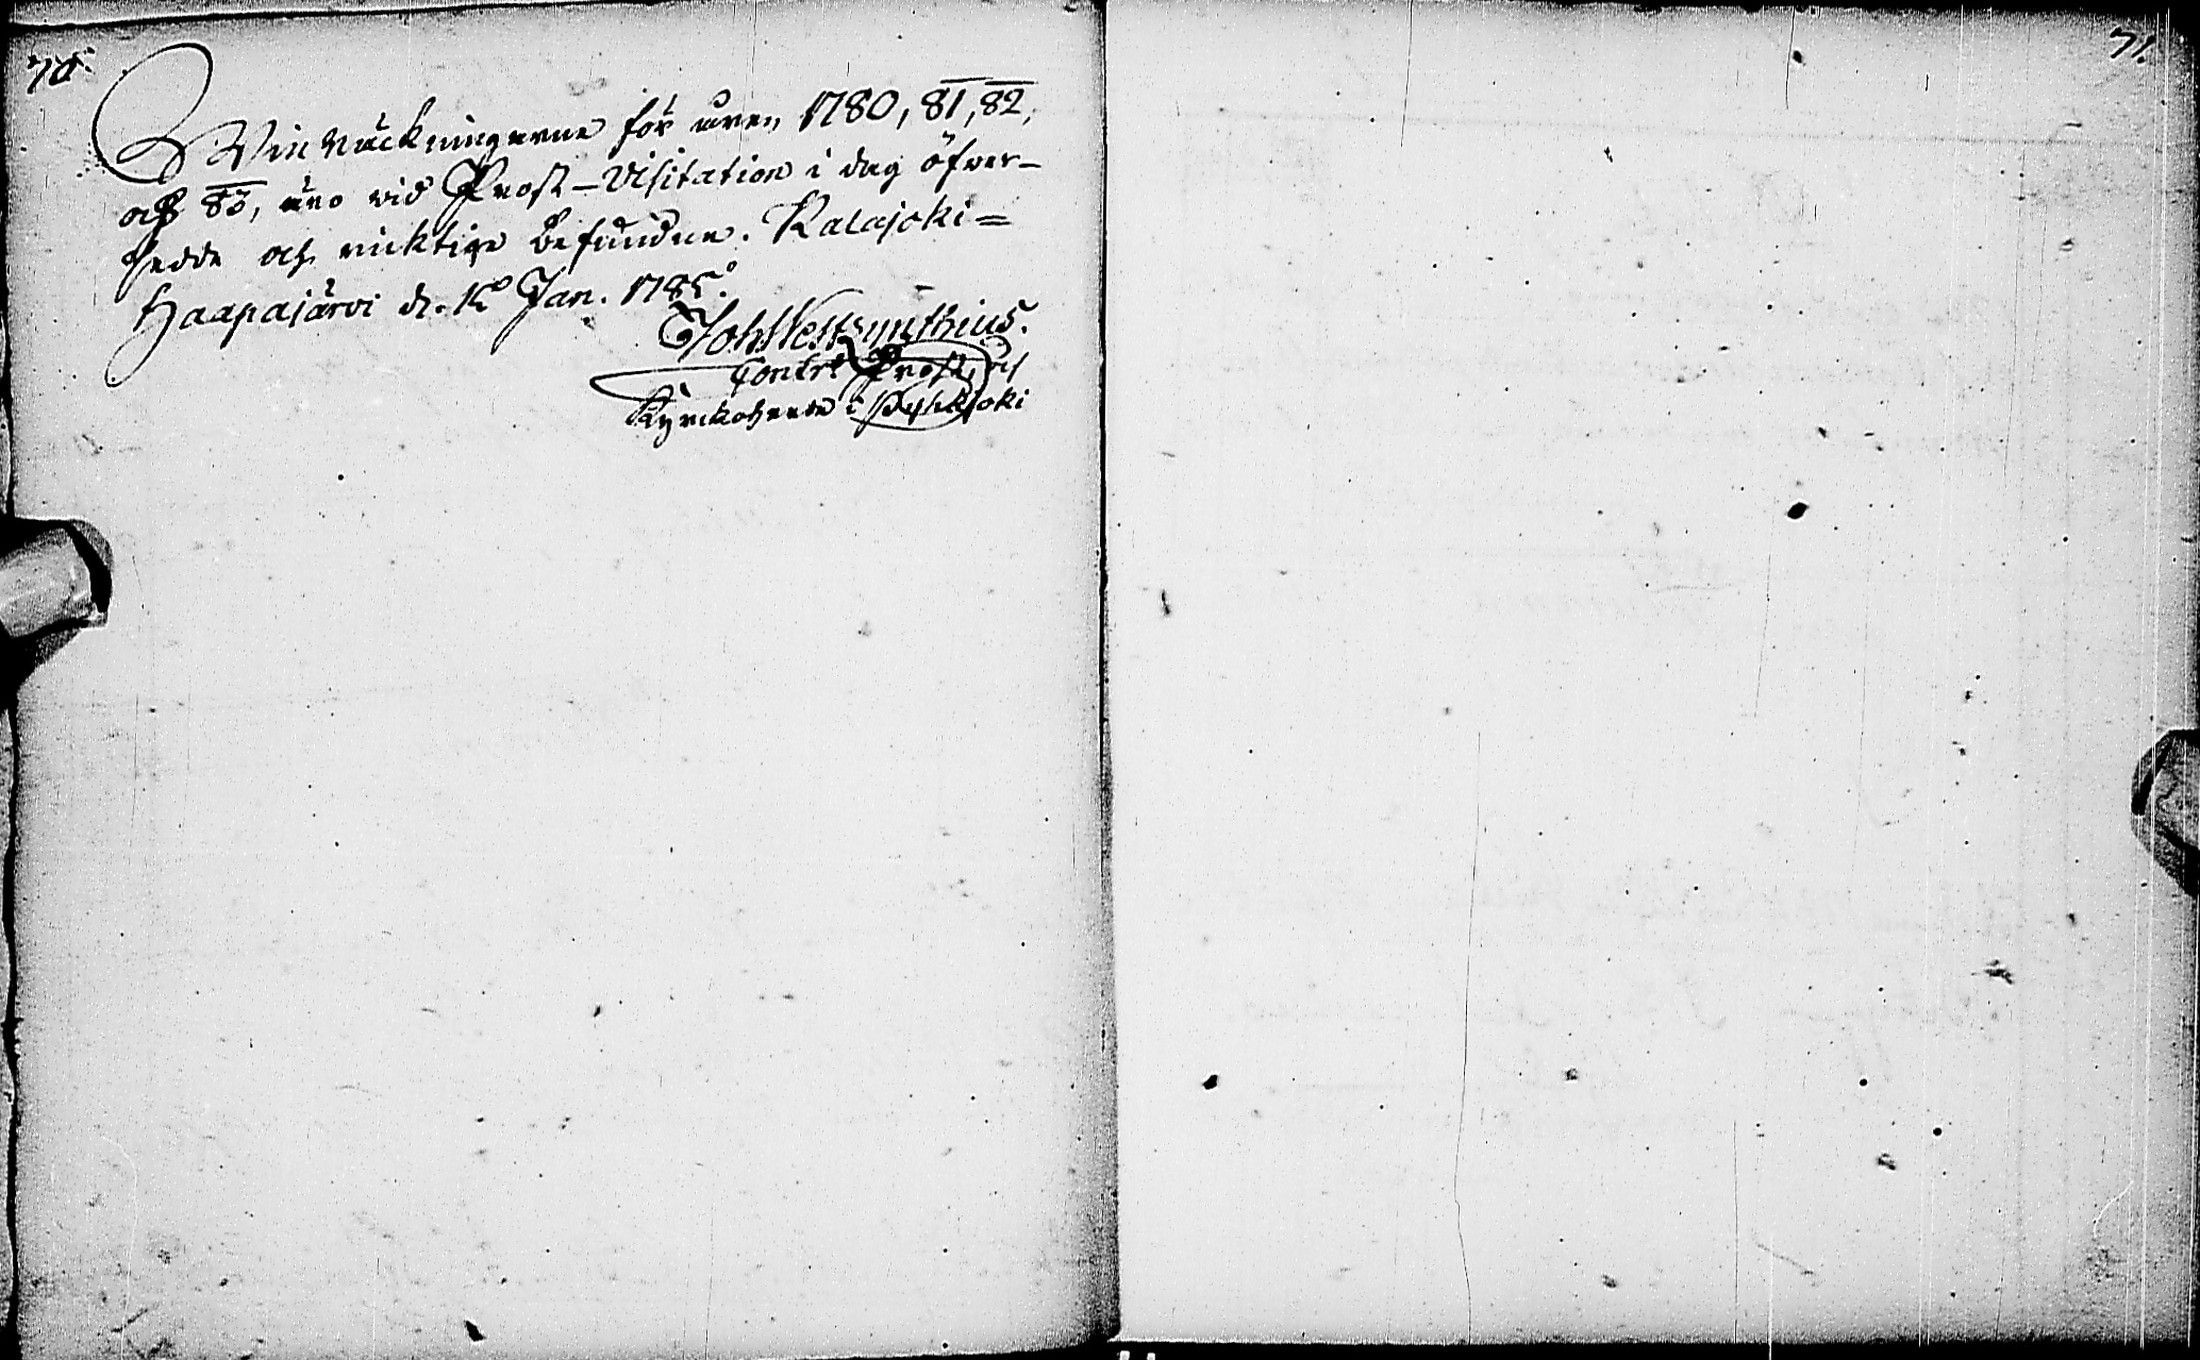 70.
71.
Win räckningarne för åren 1780, 81, 82,
och 83, äro vid Prost-Visitation i dag öfver-
sedde och ricktige befundne. Kalajoki=
Haapajärvi d. Jan. 1785.
Joh
Contr: Prost och
Kyrckoherde i Pyhäjoki